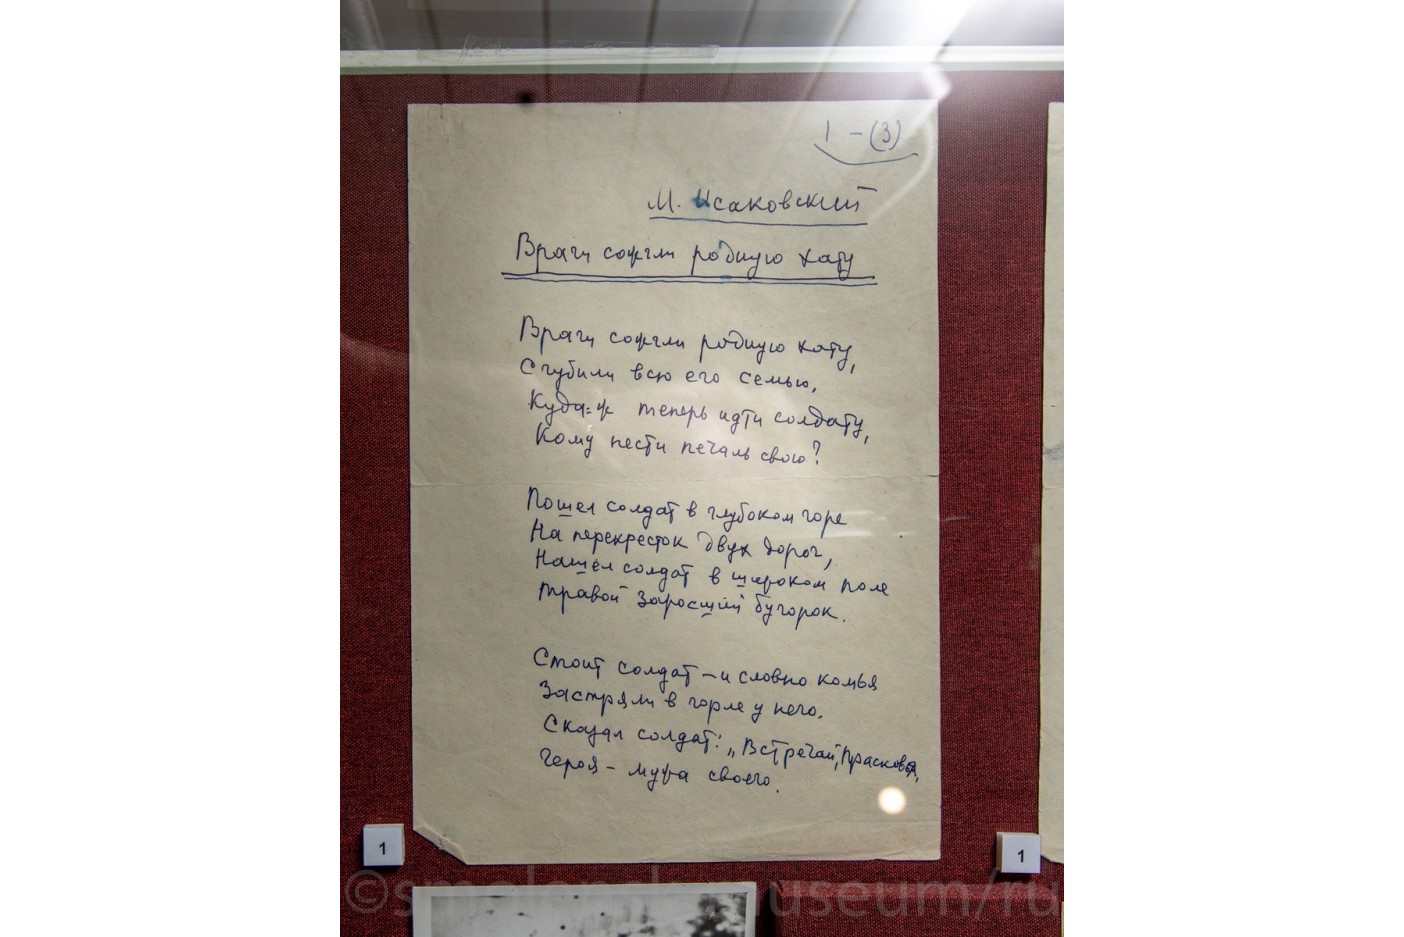 1 - (3)
М. Исаковский
Враги сожгли родную хату
Враги сожгли родную хату,
Сгубили всю его семью,
Куда-ж теперь идти солдату,
Кому нести печаль свою?
Пошел солдат в глубоком горе
На перекресток двух дорог,
Нашел солдат в широком поле
Травой заросший бугорок.
Стоит солдат – и словно комья
Застряли в горле у него.
Сказал солдат: „Встречай, Прасковья,
Героя – мужа своего.
1
1
©smolensk-museum/ru